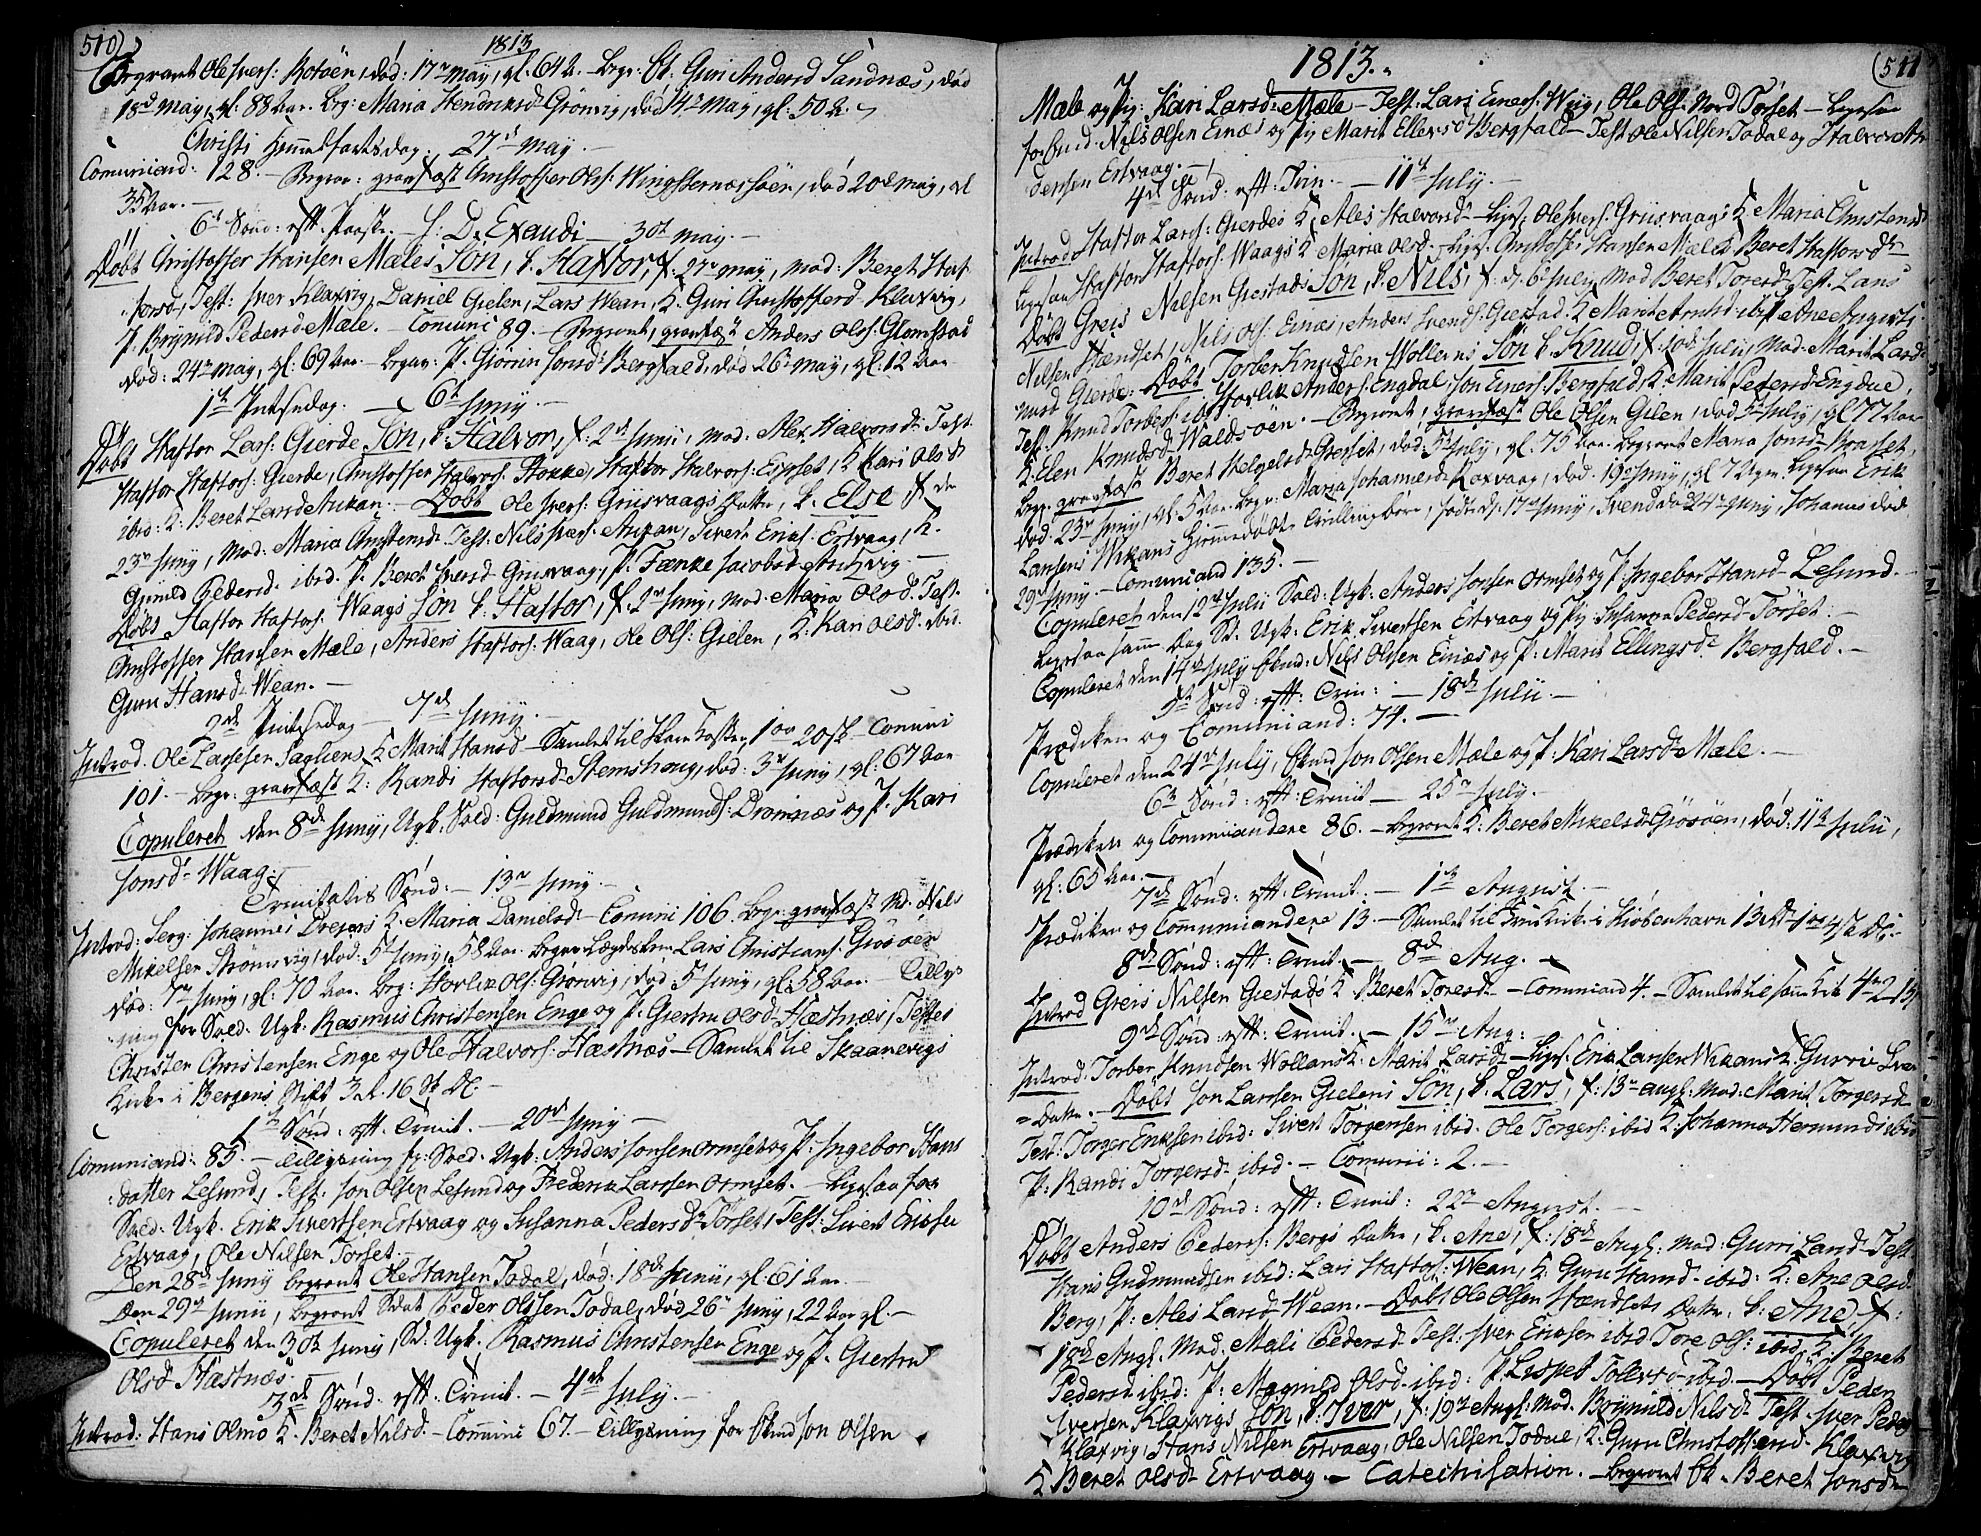 510)
1813
Begravt Ole Ivers: Rotøen, død: 17de may, gl. 64 A. Begr: Guri Andersd Sandnæs, død
18de may, gl: 88 Aar. Begr: Maria Hendriksd Grönvig, død 14de may, gl: 50 A.
Christi Himmelfartsdag. 27de may. —
Comuniand: 128. — Begrav: gravfæst Christoffer Ols: Wingsternæssöen, død 20de may, gl
35 Aar. —
6te Sönd: eft: Paaske. — S: D. Exaudi — 30te may. —
Döbt Christoffer Hansen Mæles Sön, k. Haftor, f. 27de may, mod: Beret Haf
torsd, Test: Iver Klaxvig, Daniel Gielen, Lars Wean, K. Guri Christofferd Klaxvig,
P. Brynild Pedersd Mæle. — Comuni 89. — Begravt, gravfæst Anders Ols: Glomstad
død: 24de may, gl: 69 Aar — begrav: P. Giörrin Jonsd Bergfald, død 26de may, gl: 12 Aar
1te Pintsedag. — 6te Juny. —
Döbt Haftor Lars: Gierde Sön, k. Halvor, f: 2den Juny, mod: Ales Halvorsd Test
Haftor Haftors: Gierde, Christoffer Halvors: Hokke, Haftor Halvors: Eigset, K. Kari Olsd
ibid: K. Beret Larsd Aukan. — Döbt Ole Ivers: Griisvaags Datter, k. Else f. de
23de Juny, mod: Maria Christensd Test: Nils Ivers: Aukan, Sivert Erics: Ertvaag, K.
Gunild Pedersd ibid. P. Beret Iversd Griisvaag, P. Fænke Jacobsd
Döbt Haftor Haftors: Waags Sön k. Haftor, f. 2den Juny, mod: Maria Olsd. Test.
Christoffer Hansen Mæle, Anders Haftors: Waag, Ole Ols: Gielen, K: Kari Olsd. ibid.
Guru Hansd Wean. —
2den Pintsedag — 7de Juny. —
Introd. Ole Larsesen Sagliens K. Marit Hansd — Samlet til 20 sk — Comuni
101. — Begr: gravfæst K: Randi Haftorsd Stemshaug, død: 3de Juny, gl: 67 Aar
Copuleret den 8de Juny, Ugk. Sold: Guldmund Guldmunds: Dromnæs og P. Kari
Jonsd Waag. —
Trinitatis Sönd: — 13de Juny. —
Introd: Serg: Johannes Dreyers K. Maria Danielsd — Comuni 106. Begr: gravfæst Nils
Mikelsen Strömsvig, død: 5te Juny, 58 Aar. Begrav Lægdsken Lars Christians: Giösöen
død: 7de Juny, gl: 70 Aar. Begr: Ols: Grönvig, død 5te Juny, gl: 58 Aar. — Tillys
ning for Sold. Ugk: Rasmus Christensen Enge og P. Giertru Olsd Hæstnæs, Test:
Christen Christensen Enge og Ole Halvors: Hæstnæs — Samlet til Skaanevigs
Kirke i Bergens Stift 3 d. 16 Sk Dl. —
1te Sönd: eft: Trinit. — 20de Juny —
Comuniand: 85. — Tillysning for Sold: Ugk: Anders Jonsen Ormset og P: Ingebor Hans
datter Lesund, Test: Jon Olsen Lesund og Frederik Larsen Ormset. — Ligesaa for
Sold: Ugk. Erik Sivertsen Ertvaag og Susanna Pedersd Törset, Test: Sivert Ericsen
Ertvaag, Ole Nilsen Torset. —
Den 28de Juny begravt Ole Hansen Todal, død: 18de Juny, gl: 61 Aar. —
Den 29de Junii, begravt Sdat Peder Olssen Todal, død 26de Juny, 22 Aar gl. —
Copuleret den 30te Juny, Sd. Ugk. Rasmus Christensen Enge og P. Giertru
Olsd Hæstnæs. —
3de Sönd: eft: Trinit. — 4de July. —
Introd: Hans Olmo K. Beret Nilsd. — Comuni 67. — Tillysning for Jon Olsen
1813.
(511
Mæle og Pig: Kari Larsd: Mæle — Test: Lars Einers: Wiig, Ole Ols: Nord Törset — Ligesaa
for Nils Olsen Einæs og Pig Marit Ellevsd Bergfald — Test Ole Nilsen Todal og Halvor An
densen Ertvaag. —
4de Sönd: eft: Trin. — 11te July. —
Introd Haftor Lars: Gierdes K. Ales Halvorsd — Ligs: Ole Ivers: Griisvaags K. Maria Christensd
Ligesaa Haftor Haftors: Waags K. Maria Olsd. — Ligs. Christoffer Hansen Mæles K. Beret Haftorsd
Döbt Greis Nilsen Giestads Sön, k. Nils, f. d. 6te July, mod Beret Toresd Test. Lars
Nilsen Hændset, Nils Ols: Einæs, Anders Svends: Giestad. K. Marit ibid P. Ane
nord Gierde. — Döbt Torber Knudsen Wollens Sön k. Knud, f. 10de July, mod. Marit Larsd
Test. Knud Torbers: ibid Anders: Engdal, Jon Einers: Bergfald, K. Marit Pedersd Engdal,
K. Elen Knudsd Waldsöen. — Begravt, gravfæst Ole Olsen Gielen, død 5te July, gl 77 Aar
Begr: gravfæst Beret Helgesd Giesset, død: 5te July, gl. 75 Aar. begravt Maria Jonsd
død 23de Juny, gl. 5 Aar. Begr: Maria Johannesd Roxvaag, død. 19de Juny, gl 7 Uger. Ligesaa Erik
Larsens Wikans Hjemmedöbte Tvillingbörn, födt d. 17de Juny, Svend død 24de Juny, Johannes død
29de Juny. — Comuniand 135. —
Copuleret den 12te Julii Sold: Ugk: Anders Jonsen Ormset og P: Ingebor Hansd Lesund.
Ligesaa samme Dag Sd. Ugk: Erik Sivertsen Ertvaag og Pig Susanna Pedersd Törset. —
Copuleret den 14de July Nils Olsen Einæs og P: Marit Ellingsd Bergfald. —
5te Sönd: eft: Trin: — 18de Julii. —
Prædiken og Comuniand: 74. —
Copuleret den 24de July, Jon Olsen Mæle og P. Kari Larsd Mæle. —
6te Sönd: eft: Trinit — 25de July. —
Prædiken og Communiandere 86. — begravt K: Beret Mikelsd Giösöen, død: 11te Julii,
gl: 65 Aar. —
7de Sönd: eft: Trinit. — 1te August. —
Prædiken og Communiandere 13. — Samlet til i Kiöbenhavn
8de Sönd: eft: Trinit. — 8de Aug. —
Introd Greis Nilsen Giestads K. Beret Toresd — Communiand 4. — Samlet til samme
9de Sönd: eft: Trinit. — 15de Aug: —
Introd: Torber Knudsen Wollans K: Marit Larsd — Ligs: Erik Larsen Wikans K: Gurrie Sven
Datter. — Döbt Jon Larssen Gielens Sön, k. Lars, f: 13de aug: mod: Marit Torgersd
Test: Torger Eriksen ibid: Sivert Törgersen ibid. Ole Torgers: ibid K: Johanna Hermunds ibid
P: Randi Torgersd ibid. — Comuni: 2. —
10de Sönd: eft: Trinit: 22de August. —
Döbt Anders Peders: Bergs Datter, k. Ane, f: 18de Aug: mod: Gurri Larsd Test
Hans Gudmundsen ibid: Lars Haftors: Wean, K. Guru Hansd ibid: K: Ane Olsd
Berg, P: Ales Larsd Wean. — Döbt Ole Olsen Hændsets Datter, k: Ane, f:
18de Aug. mod. Mali Pedersd Test: Iver Ericsen ibid. Tore Ols: ibid. K. Beret
Pedersd ibid: P: Magnild Olsd ibid: P. Lisbet Tollevsd ibid. — Döbt Peder
Iversen Klaxvigs Sön, k. Iver, f: 19de Aug: mod. Brynild Nilsd Test: Iver Peders
Klaxvig, Hans Nilsen Ertvaag, Ole Nilsen Todal, K. Guru Christoffersd Klaxvig
K Beret Olsd Ertvaag. — Catechisation. — Begravet Beret Jonsd